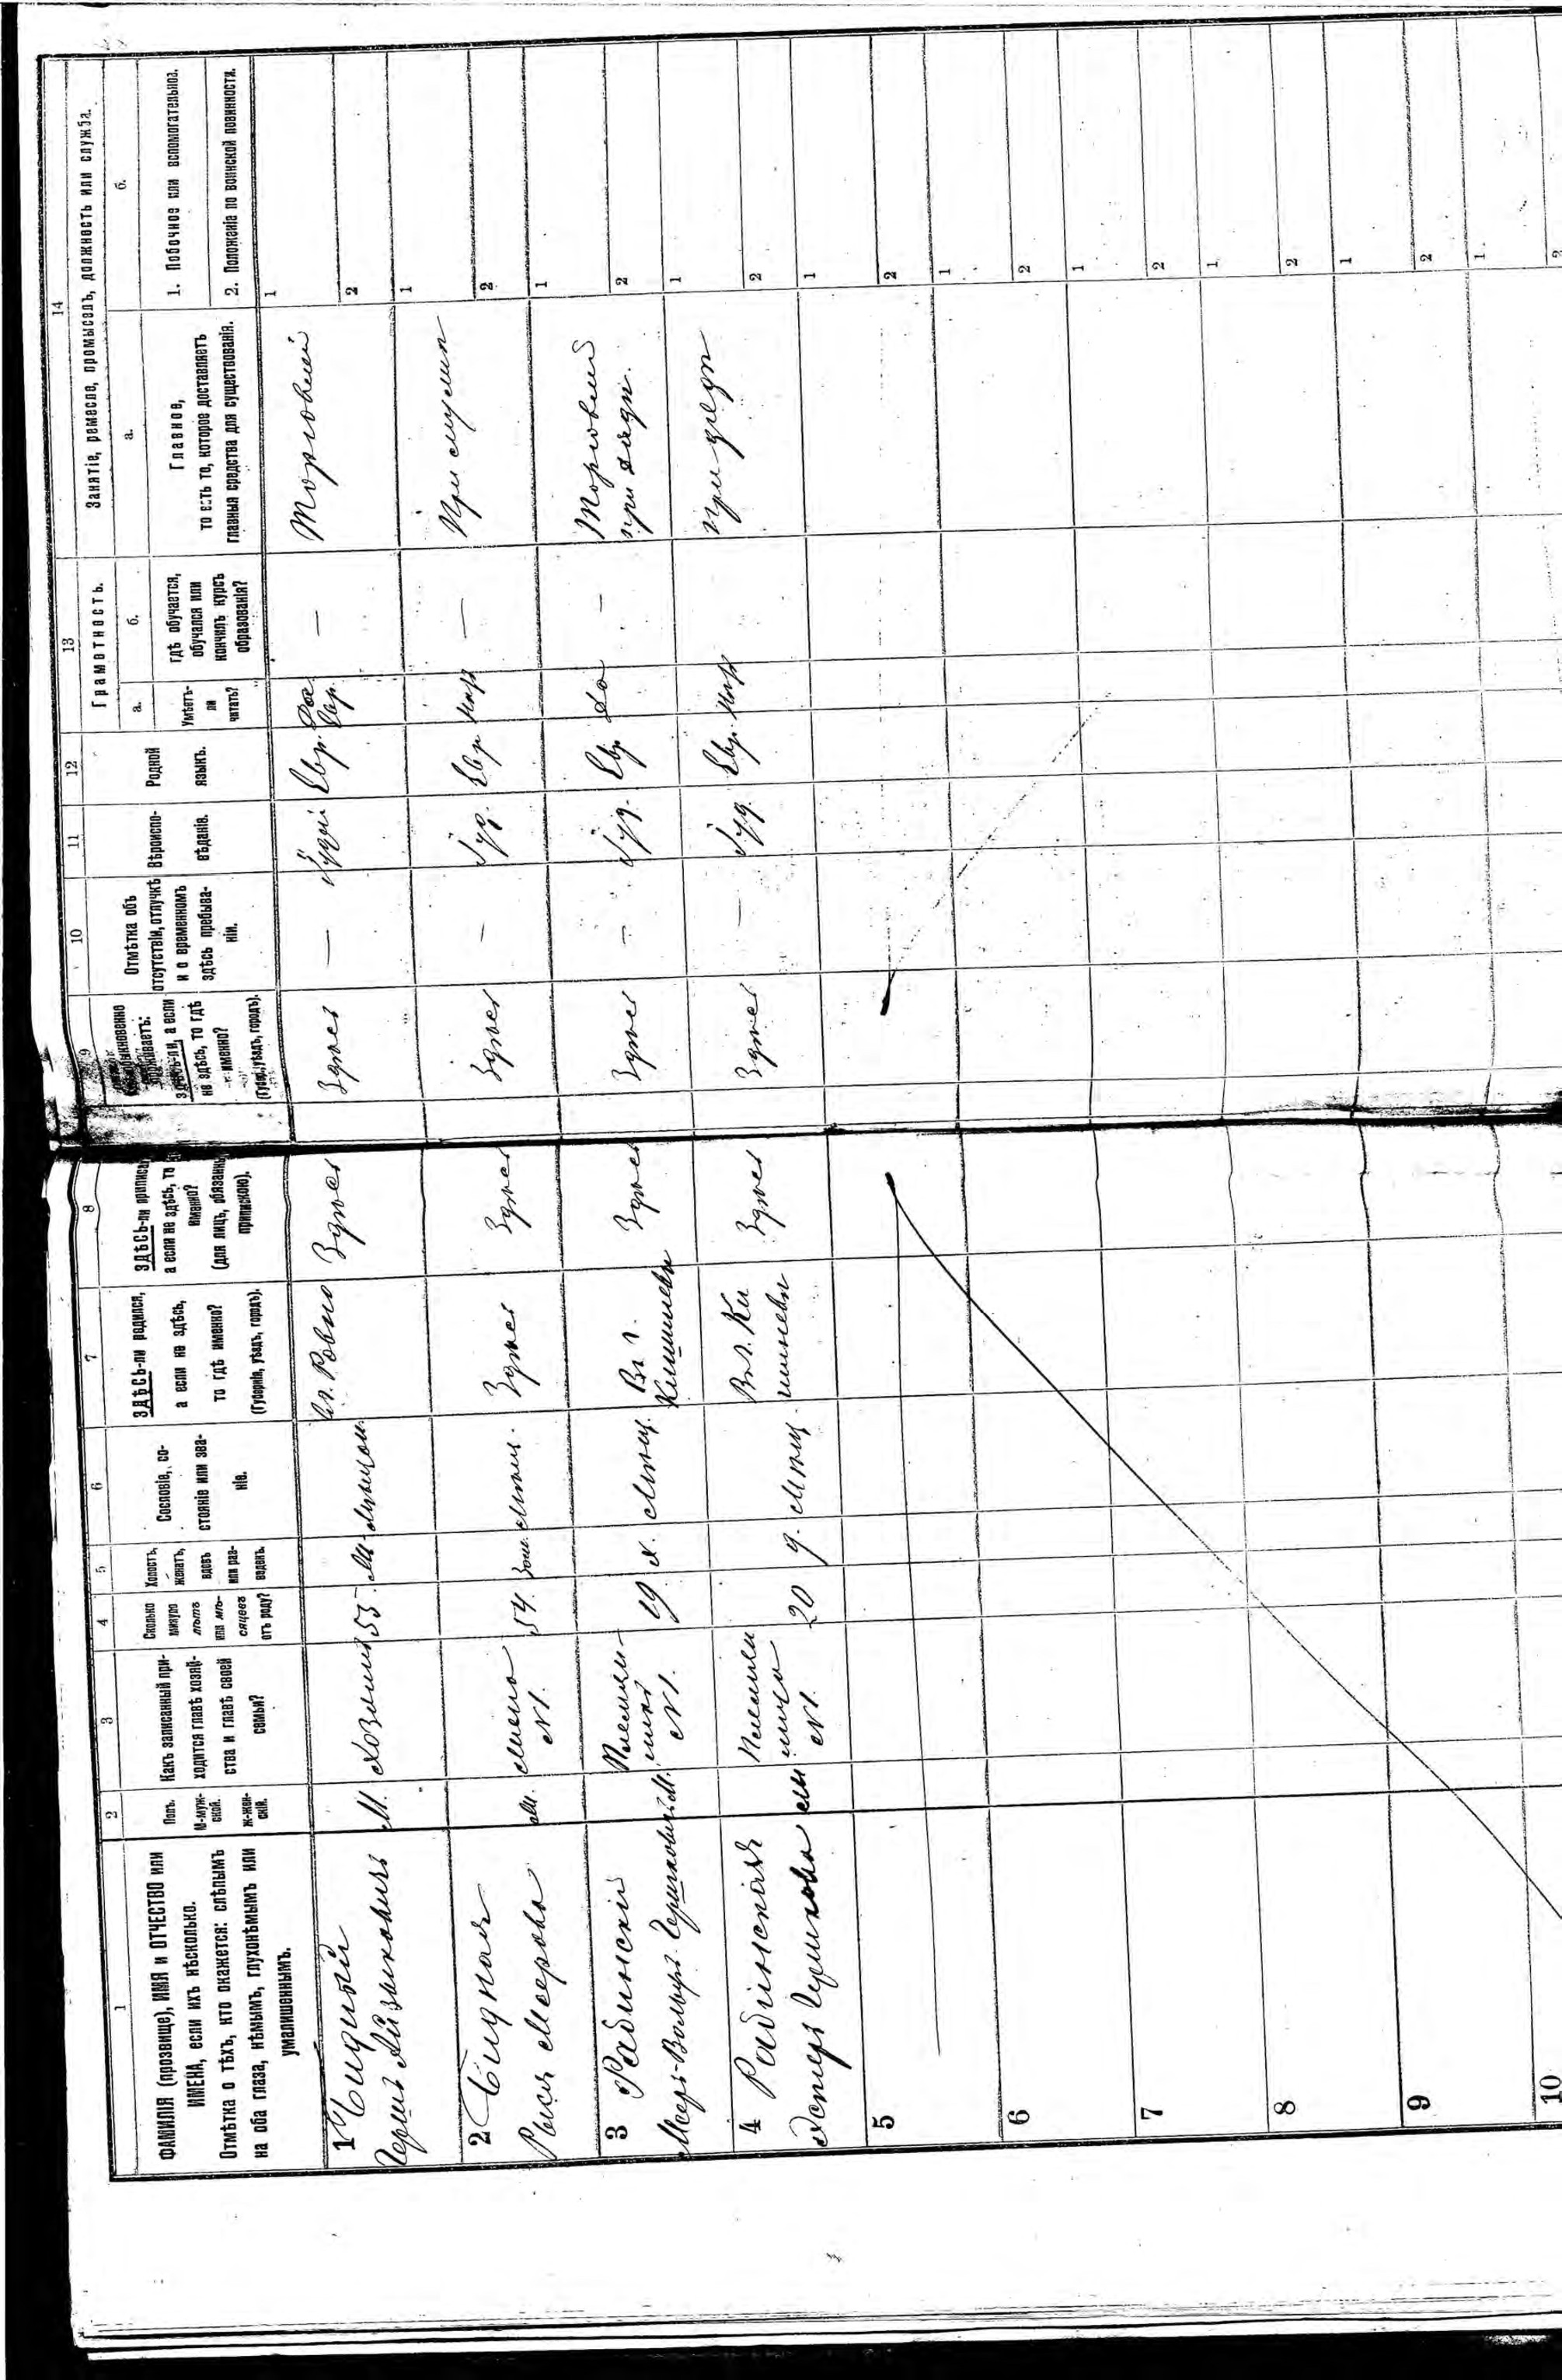 1
ФАМИЛІЯ (прозвище), ИМЯ и ОТЧЕСТВО или
ИМЕНА, если ихъ нѣсколько.
Отмѣтка о тѣхъ, кто окажется: слѣпымъ
на оба глаза, нѣмымъ, глухонѣмымъ или
умалишеннымъ.
2
Полъ.
М-муж-
ской.
Ж-жен-
скій.
3
Какъ записанный при-
ходится главѣ хозяй-
ства и главѣ своей
семьи?
4
Сколько
минуло
лѣтъ
или мѣ-
сяцевъ
отъ роду?
5
Холостъ,
женатъ,
вдовъ
или раз-
веденъ.
6
Сословіе, со-
стояніе или зва-
ніе.
7
ЗДѢСЬ-ли родился,
а если не здѣсь,
то гдѣ именно?
(Губернія, уѣздъ, городъ).
8
ЗДѢСЬ-ли приписа
а если не здѣсь, то
именно?
(для лицъ, обязанны
припискою).
9
здѣсь-ли, а если
не здѣсь, то гдѣ
именно?
(Губ., уѣздъ, городъ).
10
Отмѣтка объ
отсутствіи, отлучкѣ
и о временномъ
здѣсь пребыва-
ніи.
11
Вѣроиспо-
вѣданіе.
12
Родной
языкъ.
13
Грамотность.
а.
Умѣетъ-
ли
читать?
б.
гдѣ обучается,
обучался или
кончилъ курсъ
образованія?
14
Занятіе, ремесло, промыселъ, должность или служба.
а.
Главное,
то есть то, которое доставляетъ
главныя средства для существованія.
б.
1. Побочное или вспомогательное.
2. Положеніе по воинской повинности.
1
Гершъ Айзиковичъ
М.
Хозяинъ
53
М.
Мѣщан.
Вг. Ровно
Здѣсь
Здѣсь
—
Іудей
Евр.
Да
Евр.
—
Торговый
1
2
2
Рыся Меерова
Жена
№1.
54.
Зам.
Мѣщ.
Здѣсь
Здѣсь
Здѣсь
—
Іуд.
Евр
Нѣт
—
При мужѣ
1
2
3 Рабинскій
Меер-Вольфъ Гершковичъ
М.
Племян-
никъ
№1.
19
Х.
Мѣщ.
Въ г.
Кишиневѣ
Здѣсь
Здѣсь
—
Іуд.
Евр
Да
—
Торговый
при дядѣ.
1
2
4 Рабинская
Эстеръ Гершкова
Племян
ница
№1.
20
Мѣщ.
Въ г. Ки
шиневѣ
Здѣсь
Здѣсь
—
Іуд.
Евр
Нѣт
при дядѣ
1
2
5
1
2
6
1
2
7
1
2
8
1
2
9
1
2
10
1
2